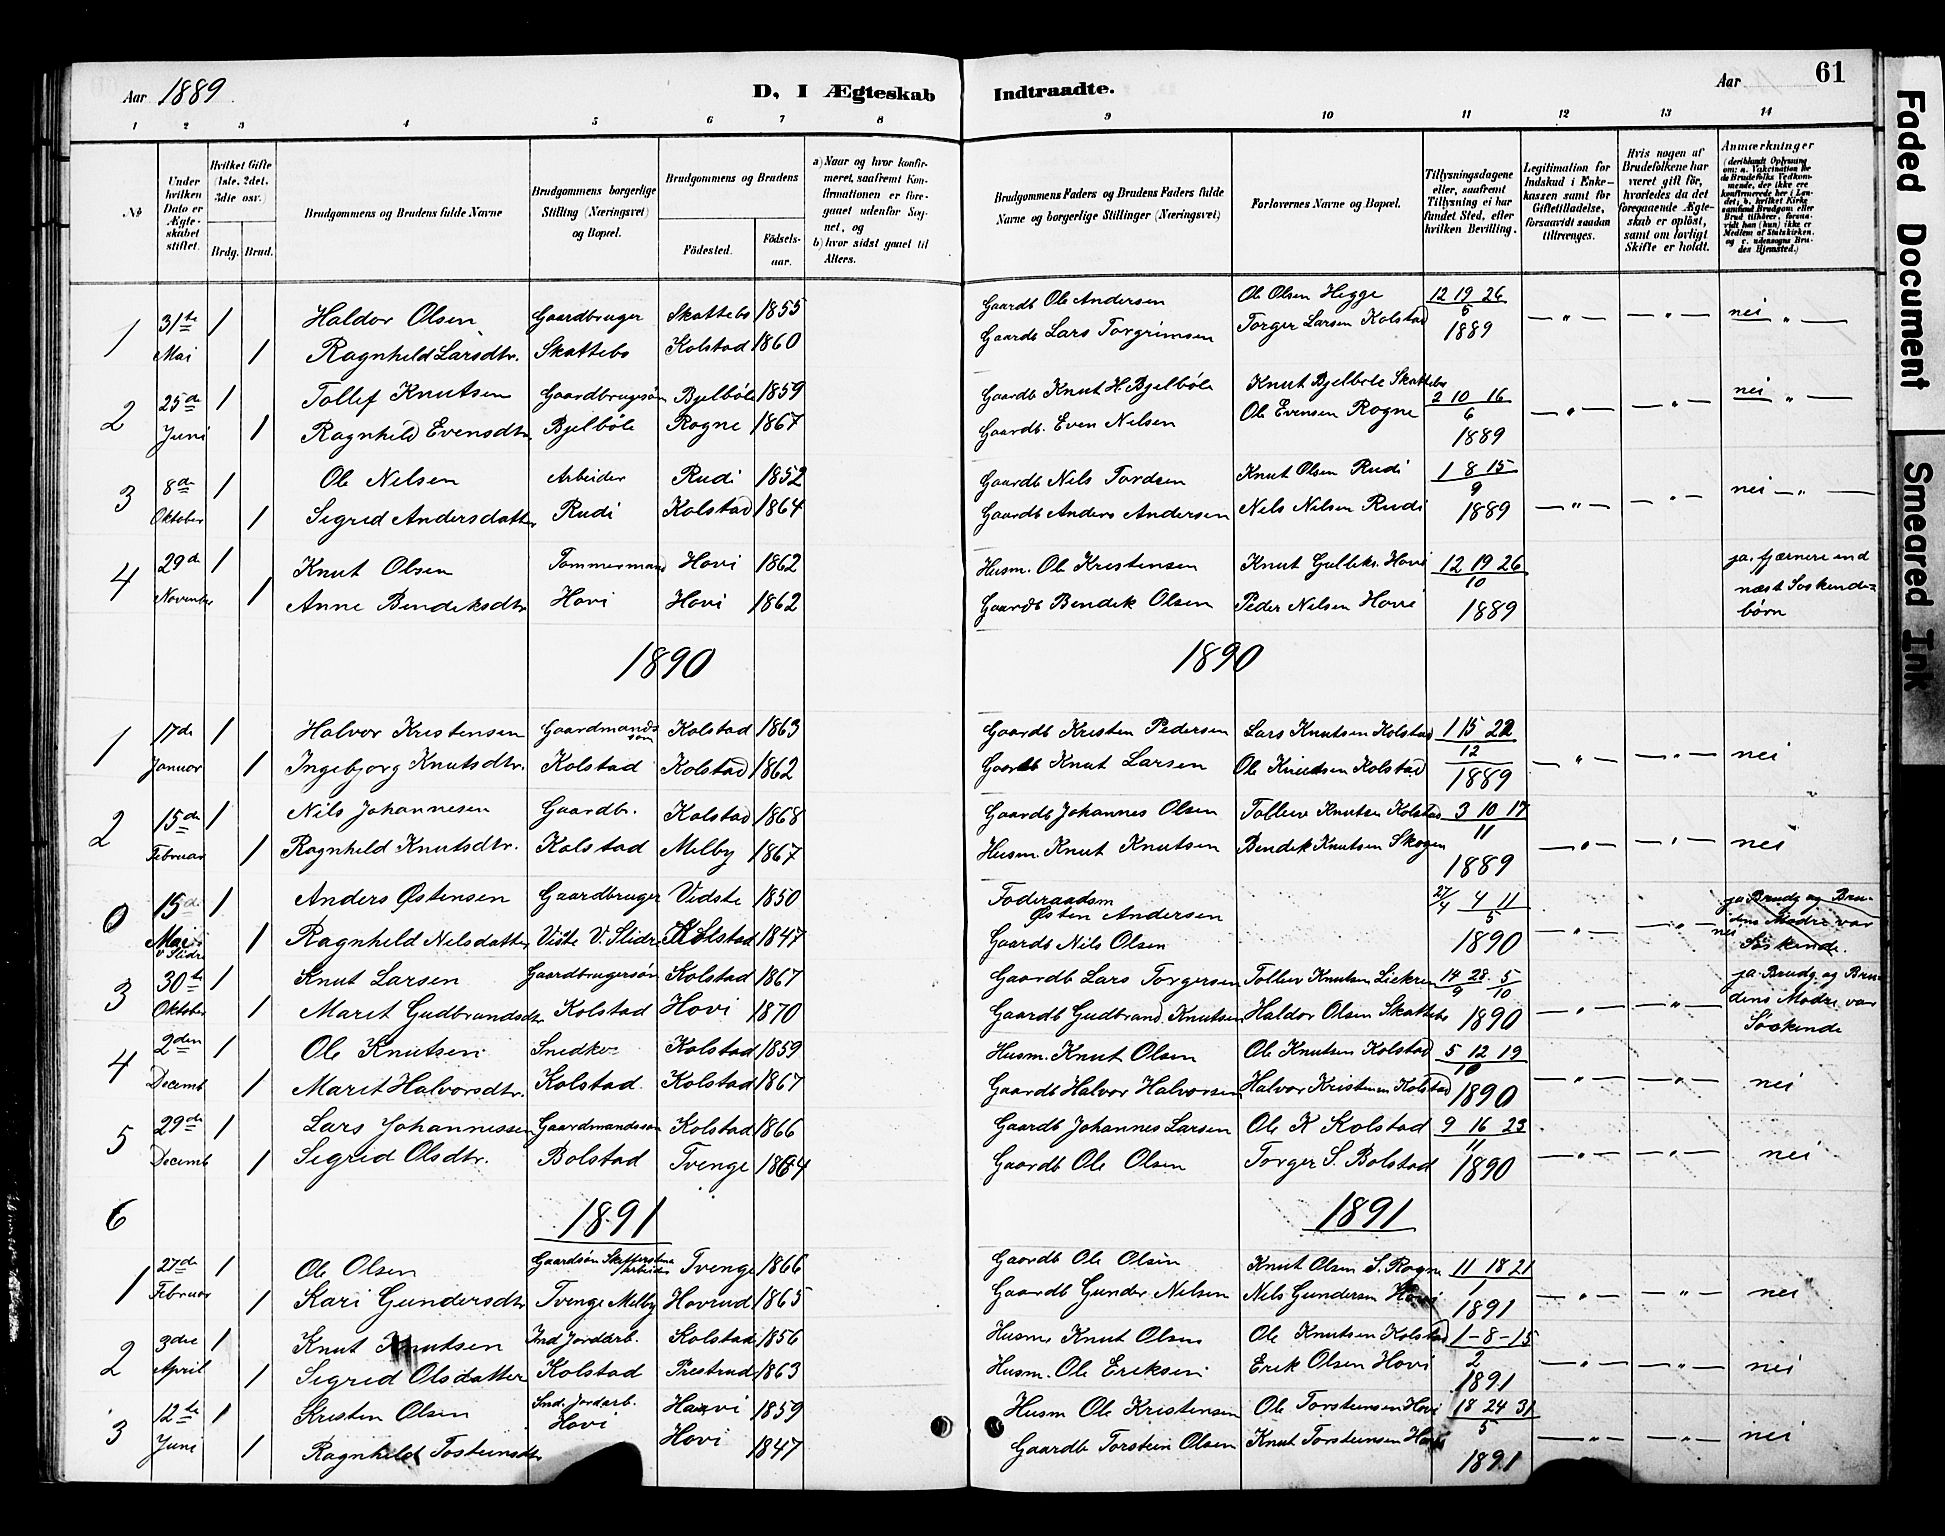 Aar 1889
D. I Ægteskab Indtraadte.
Aar
61
1 2 3 4 5 6 7 8 9 10 11 12 13 14
№
Under hvilken Dato er Ægteskabet stiftet.
Hvilket Gifte (1ste, 2det, 3die osv.)
Brdg. Brud.
Brudgommens og Brudens fulde Navne
Brudgommens borgerlige Stilling (Næringsvei) og Bopæl.
Brudgommens og Brudens
Fødested.
Fødselsaar.
a) Naar og hvor konfirmeret, saafremt Konfirmationen er foregaaet udenfor Sognet, og
b) hvor sidst gaaet til Alters.
Brudgommens Faders og Brudens Faders fulde Navne og borgerlige Stillinger (Næringsvei)
Forlovernes Navne og Bopæl.
Tillysningsdagene eller, saafremt Tillysning ei har fundet Sted, efter hvilken Bevilling.
Legitimation for Indskud i Enkekassen samt for Giftetilladelse, forsaavidt saadan tiltrænges.
Hvis nogen af Brudefolkene har været gift før, hvorledes da det foregaaende Ægteskab er opløst, samt om lovligt Skifte er holdt.
Anmærkninger
(deriblandt Oplysning om: a. Vakcination for de Brudefolks Vedkommende, der ikke ere konfirmerede her i Landet; b. hvilket Kirkesamfund Brudgom eller Brud tilhører, forsaavidt han (hun) ikke er Medlem af Statskirken, og c. udensogns Brudes Hjemsted.)
1 31te 1 Haldor Olsen Gaardbruger Skattebo 1855 Gaardb Ole Andersen Ole Olsen Hegge 12 19 26 — " — — " — nei " —
Mai 1 Ragnhild Larsdtr. Skattebo Kolstad 1860 Gaardb Lars Torgrimsen Torger Larsen Kolstad 6 1889
2 25de 1 Tollef Knutsen Gaardbrugersøn Bjelbøle 1859 Gaardb Knut H. Bjelbøle Knut Bjelbøle Skattebo 2 10 16 — " — — " — nei " —
Juni 1 Ragnhild Evensdtr. Bjelbøle Rogne 1867 Gaardb. Even Nielsen Ole Evensen Rogne 6 1889
3 8de 1 Ole Nelsen Arbeider Rudi 1852 Gaardb Nils Tordsen Knut Olsen Rudi 1 8 15 — " — — " — nei — " —
Oktober 1 Sigrid Andersdatter Rudi Kolstad 1864 Gaardb Anders Andersen Nels Nelsen Rudi 9 1889
4 29de 1 Knut Olsen Tømmermand Hovi 1862 Husm. Ole Kristensen Knut Gulliks. Hovi 12 19 26 ja. fjærnere end
November 1 Anne Bendiksdtr Hovi Hovi 1862 Gaardb Bendik Olsen Peder Nelsen Hovi 10 1889 næst Søskendebørn
1890 1890
1 17de 1 Halvor Kristensen Gaardmandssøn Kolstad 1863 Gaardb Kristen Pedersen Lars Knutsen Kolstad 1 15 22 — " — — " — nei
Januar 1 Ingebjorg Knutsdtr. Kolstad Kolstad 1862 Gaardb Knut Larsen Ole Knutsen Kolstad 12 1889
2 15de 1 Nils Johannesen Gaardbr. Kolstad 1868 Gaardb Johannes Olsen Tolleiv Knutsen Kolstad 3 10 17 — " — — " — nei
Februar 1 Ragnhild Knutsdtr. Kolstad Melby 1867 Husm. Knut Knutsen Bendik Knutsen Skogen 11 1889
0 15de 1 Anders Østensen Gaardbruger Vidste 1850 Føderaadsm Østen Andersen 27/4 4 11 ja Brudg og Bru-
Mai v Slidre 1 Ragnhild Nelsdatter Viste V. Slidre Kolstad 1847 Gaardb Nils Olsen 5 1890 — " — — " — nei dens Mødre var Søskende.
3 30te 1 Knut Larsen Gaardbrugersøn Kolstad 1867 Gaardb Lars Torgersen Tolleiv Knutsen 14 28 5 ja. Brudg. og Bru-
Oktober 1 Marit Gudbrandsdtr Kolstad Hovi 1870 Gaardb Gudbrand Knutsen Haldor Olsen Skattebo 9 10 1890 — " — — " — dens Mødre var Søskende
4 2den 1 Ole Knutsen Snedker Kolstad 1859 Husm. Knut Olsen Ole Knutsen Kolstad 5 12 19 — " — — " — nei
Decemb 1 Marit Halvorsdtr. Kolstad. Kolstad 1867 Gaardb Halvor Halvorsen Halvor Kristensen Kolstad 10 1890
5 29de 1 Lars Johannessen Gaardmandssøn Kolstad 1866 Gaardb Johannes Larsen Ole K Kolstad 9 16 23 — " — — " — nei
Decemb 1 Sigrid Olsdtr. Bolstad Tvenge 1864 Gaardb Ole Olsen Torger S. Bolstad 11 1890
6 1891 1891
1 27de 1 Ole Olsen Gaardsøn Arbeider Tvenge 1866 Gaardb Ole Olsen Knut Olsen S. Rogne 11 18 21 — " — — " — nei
Februar 1 Kari Gundersdtr Tvenge Melby Hovrud 1865 Gaardb Gunder Nelsen Nels Gundersen Hovi 1 1891
2 3die 1 Knut Knutsen Ind Jordarb. Kolstad 1856 Husm. Knut Olsen Ole Knutsen Kolstad 1-8-15 — " — — " — nei
April 1 Sigrid Olsdatter Kolstad Prestrud 1863 Husm. Ole Eriksen Erik Olsen Hovi 2 1891
3 12te 1 Kristen Olsen Ind. Jordarb. Hovi 1859 Husm Ole Kristensen Ole Torsteinsen Hovi 18 24 31 — " — — " — nei
Juni 1 Ragnhild Tosteinsdtr Hovi Hovi 1847 Gaardb Torstein Olsen Knut Torsteinsen Hovi 5 1891
Faded Document
Smeared Ink